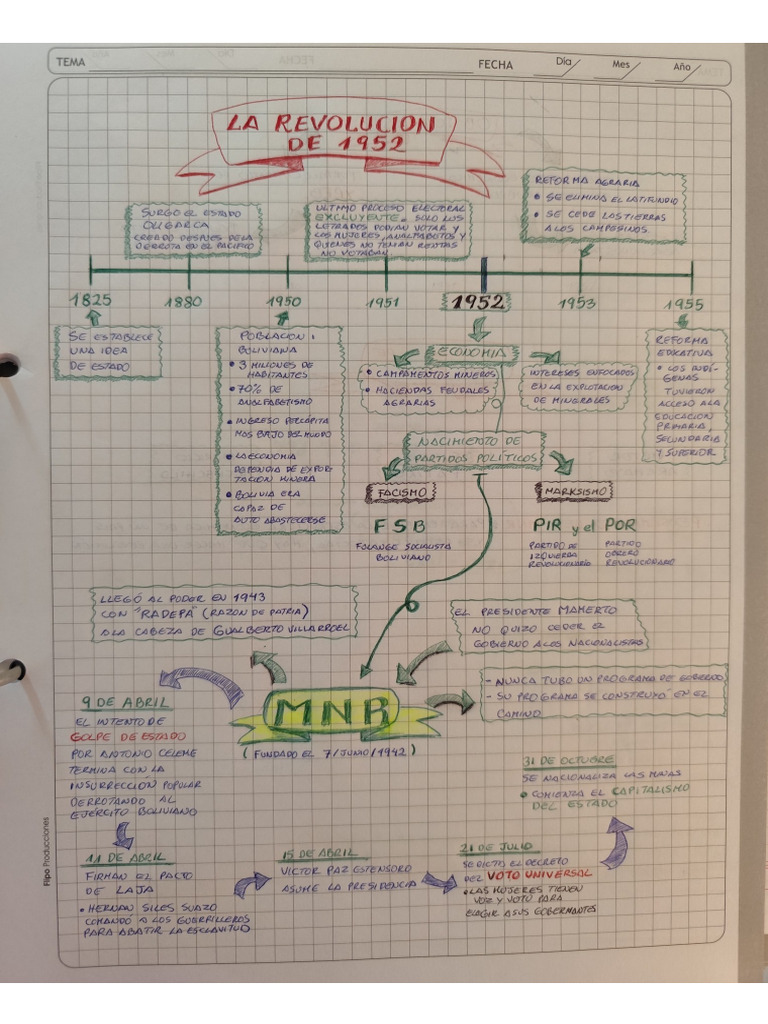 TEMA
FECHA
Día
Mes
Año
LA REVOLUCION
DE 1952
SURGE EL ESTADO
OLIGARCA
CREADO DESPUES DE LA
DERROTA EN EL PACIFICO
ULTIMO PROCESO ELECTORAL
EXCLUYENTE. SOLO LOS
LETRADOS PODIAN VOTAR Y
LAS MUJERES, ANALFABETOS Y
QUIENES NO TENIAN RENTAS
NO VOTABAN.
REFORMA AGRARIA
• SE ELIMINA EL LATIFUNDIO
• SE CEDE LOS TIERRAS
A LOS CAMPESINOS.
1825
1880
1950
1951
1952
1953
1955
SE ESTABLECE
UNA IDEA
DE ESTADO
POBLACION:
BOLIVIANA
• 3 MILLONES DE
HABITANTES
• 70% DE
ANALFABETISMO
• INGRESO PERCÁPITA
MAS BAJO DEL MUNDO
• LA ECONOMIA
DEPENDIA DE EXPOR
TACION MINERA
• BOLIVIA ERA
CAPAZ DE
AUTO ABASTECERSE
ECONOMIA
• CAMPAMENTOS MINEROS
• HACIENDAS FEUDALES
AGRARIAS
INTERESES ENFOCADOS
EN LA EXPLOTACION
DE MINERALES
REFORMA
EDUCATIVA
• LOS INDÍ-
GENAS
TUVIERON
ACCESO A LA
EDUCACION
PRIMARIA,
SECUNDARIA
Y SUPERIOR
NACIMIENTO DE
PARTIDOS POLÍTICOS
FACISMO
MARKSISMO
FSB
FALANGE SOCIALISTA
BOLIVIANO
PIR y el POR
PARTIDO DE
IZQUIERDA
REVOLUCIONARIO
PARTIDO
OBRERO
REVOLUCIONARIO
LLEGÓ AL PODER EN 1943
CON "RADEPA" (RAZON DE PATRIA)
A LA CABEZA DE GUALBERTO VILLARROEL
EL PRESIDENTE MAMERTO
NO QUIZO CEDER EL
GOBIERNO A LOS NACIONALISTAS
- NUNCA TUBO UN PROGRAMA DE GOBIERNO
- SU PROGRAMA SE CONSTRUYO EN EL
CAMINO
MNR
(FUNDADO EL 7/JUNIO/1942)
9 DE ABRIL
EL INTENTO DE
GOLPE DE ESTADO
POR ANTONIO CELEME
TERMINA CON LA
INSURRECCIÓN POPULAR
DERROTANDO AL
EJERCITO BOLIVIANO
11 DE ABRIL
FIRMAN EL PACTO
DE LAJA
• HERNAN SILES SUAZO
COMANDÓ A LOS GUERRILLEROS
PARA ABATIR LA ESCLAVITUD
15 DE ABRIL
VICTOR PAZ ESTENSORO
ASUME LA PRESIDENCIA
21 DE JULIO
SE DICTO EL DECRETO
DEL VOTO UNIVERSAL
• LAS MUJERES TIENEN
VOZ Y VOTO PARA
ELEGIR A SUS GOBERNANTES
31 DE OCTUBRE
SE NACIONALIZA LAS MINAS
• COMIENZA EL CAPITALISMO
DEL ESTADO
Flipo Producciones